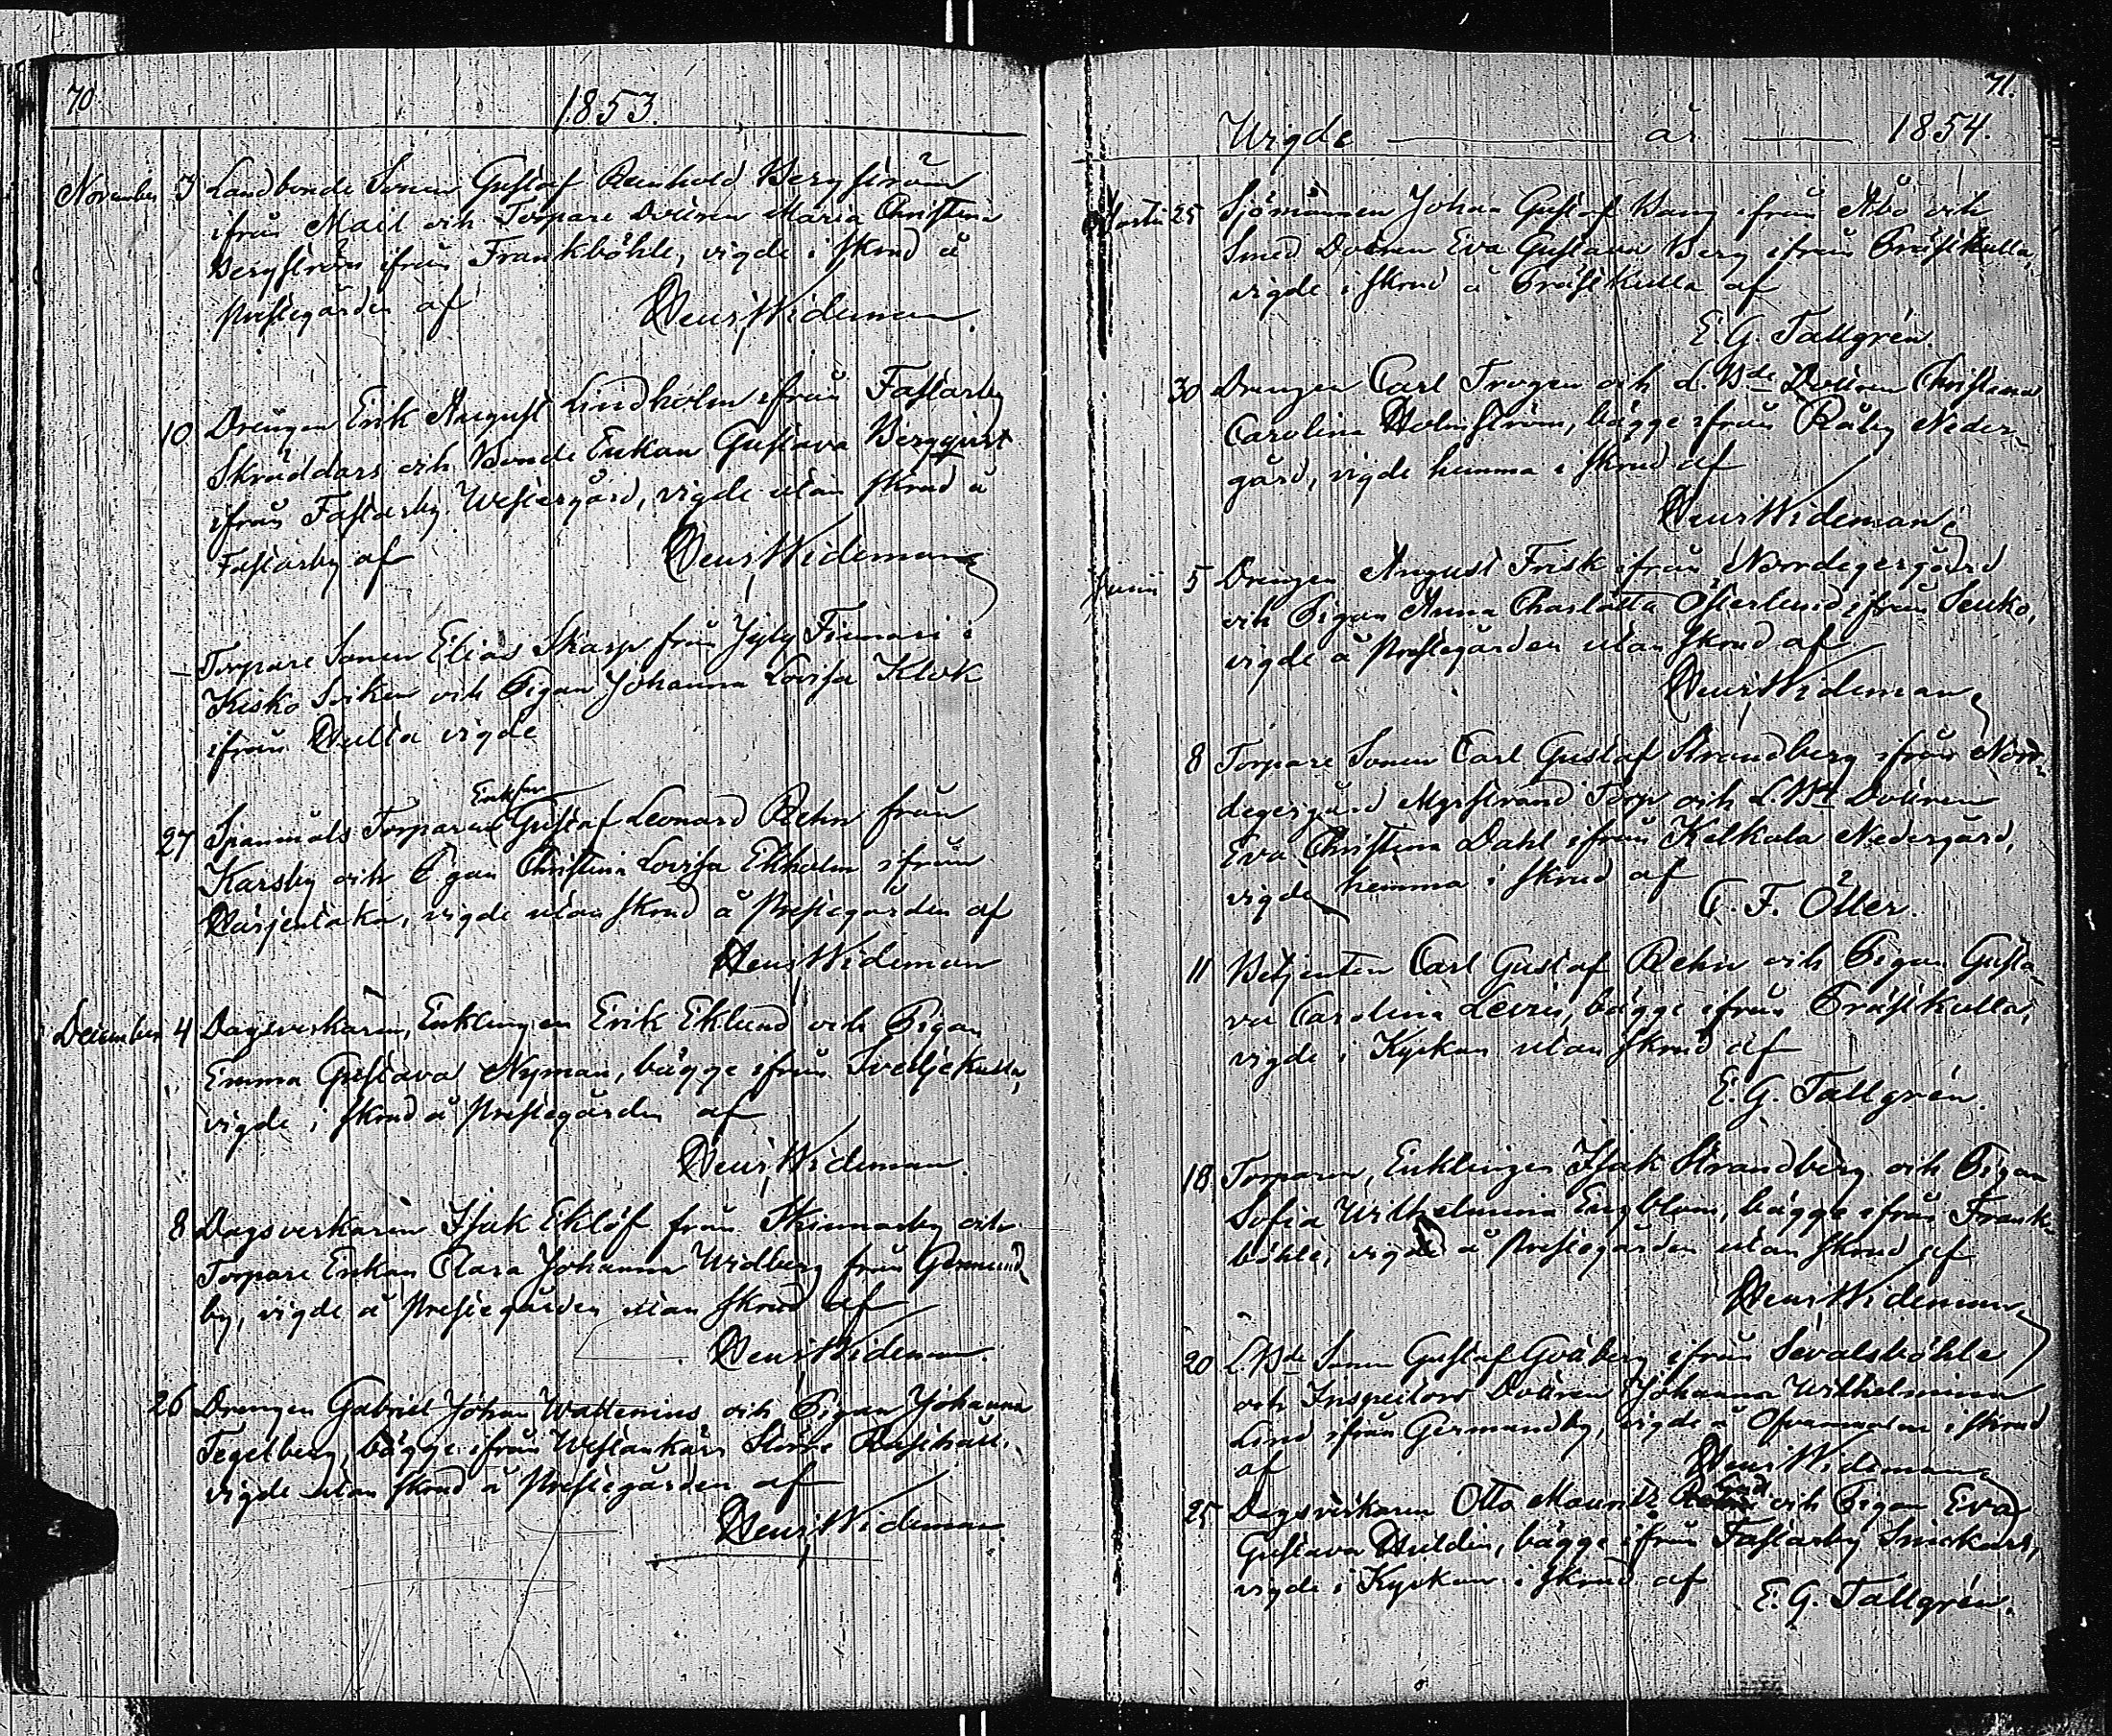 70.
1853.
November 3 Landbonde Sonen Gustaf Reinhold Bergström
ifrån Mail och Torpare Dottren Maria Christina
Bergström ifrån Frankböhle, vigde i skrud å
Prestegården af Henr, Wideman.
10 Drengen Erik August Lindholm ifrån Fastarby
Skräddars och Bonde Enkan Gustava Bergqvist
ifrån Fastarby Westergård, vigde utan skrud å
Fastarby af Henr, Wideman
— Torpare Sonen Elias Skarp från Jyly Finnari i
Kisko Soken och Pigan Johanna Lovisa Klok
ifrån Hulta vigde
Enkl
27 Spanmåls Torparen Gustaf Leonard Rehn från
Karsby och Pigan Christina Lovisa Ekholm ifrån
vigde utan skrud å Prestegården af
Henr Wideman
December 4 Dagsverkaren, Enklingen Erik Eklund och Pigan
Emma Gustava Nyman, bägge ifrån Svedjekulla,
vigde i skrud å Prestegården af
Henr, Wideman.
8 Dagsverkaren Isak Eklöf från Skinnarby och
Torpare Enkan Clara Johanna Widberg från Germund
by, vigde å Prestegården utan skrud af
Henr, Wideman.
26 Drengen Gabriel Johan Wattenius och Pigan Johanna
Tegelberg, bägge ifrån Westankärr Större
vigde utan skrud å Prestegården af
Henr, Wideman.
71.
Wigde år 1854.
25 Sjömannen Johan Gustaf Wang ifrån Åbo och
Smed Dottren Eva Gustava Berg ifrån Präskulla,
vigde i skrud å Präskulla af
E. G. Tallgrén.
30 Drengen Carl Trogen och L. Bde Dottren Christina
Carolina Holmström, bägge ifrån Råby Neder-
gård, vigde hemma i skrud af
Henr Wideman
Junii 5 Drengen August Frisk ifrån Nordegergård
och Pigan Anna Charlotta Österlund ifrån Senko,
vigde å Prestegården utan skrud af
Henr, Wideman
8 Torpare Sonen Carl Gustaf Strandberg ifrån Nor-
degergård Myrstrand Torp och L. Bd Dottren
Eva Christina Dahl ifrån Kelkala Nedergård,
vigde hemma i skrud af
C. F. Öller.
11 Betjenten Carl Gustaf Rehn och Pigan Gusta-
va Carolina bägge ifrån Präskulla,
vigde i Kyrkan utan skrud af
E. G. Tallgrén.
18 Torparen, Enklingen Isak Strandberg och Pigan
Sofia Wilhelmina Engblom, bägge ifrån Frank-
böhle, vigde å Prestegården utan skrud af
Henr, Wideman
20 L. Bde Sonen Gustaf ifrån Sevalsböhle
och Inspectors Dottren Johanna Wilhelmina
Lind ifrån Germundby, vigde å i skrud
af Henr Wideman
25 Dagsverkaren Otto Mauritz och Pigan Eva
Gustava Huldin, bägge ifrån Fastarby
vigde i Kyrkan i skrud af E. G. Tallgrén.